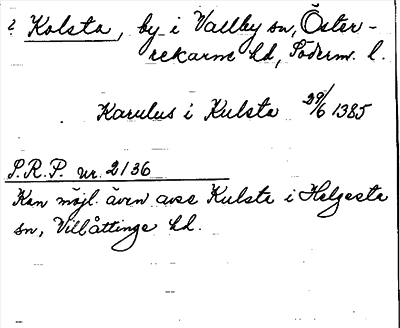 ? Kolsta, by i Vallby sn, Öster-
rekarne hd, Söderm. l.
Karulus i Kulsta 29/6 1385
S.R.P. nr. 2136
Kan möjl. även avse Kulsta i Helgesta
sn, Villåttinge hd.